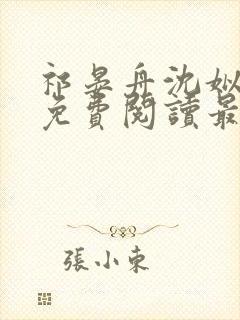 祁晏舟沈姒
免費閱讀最
張小束